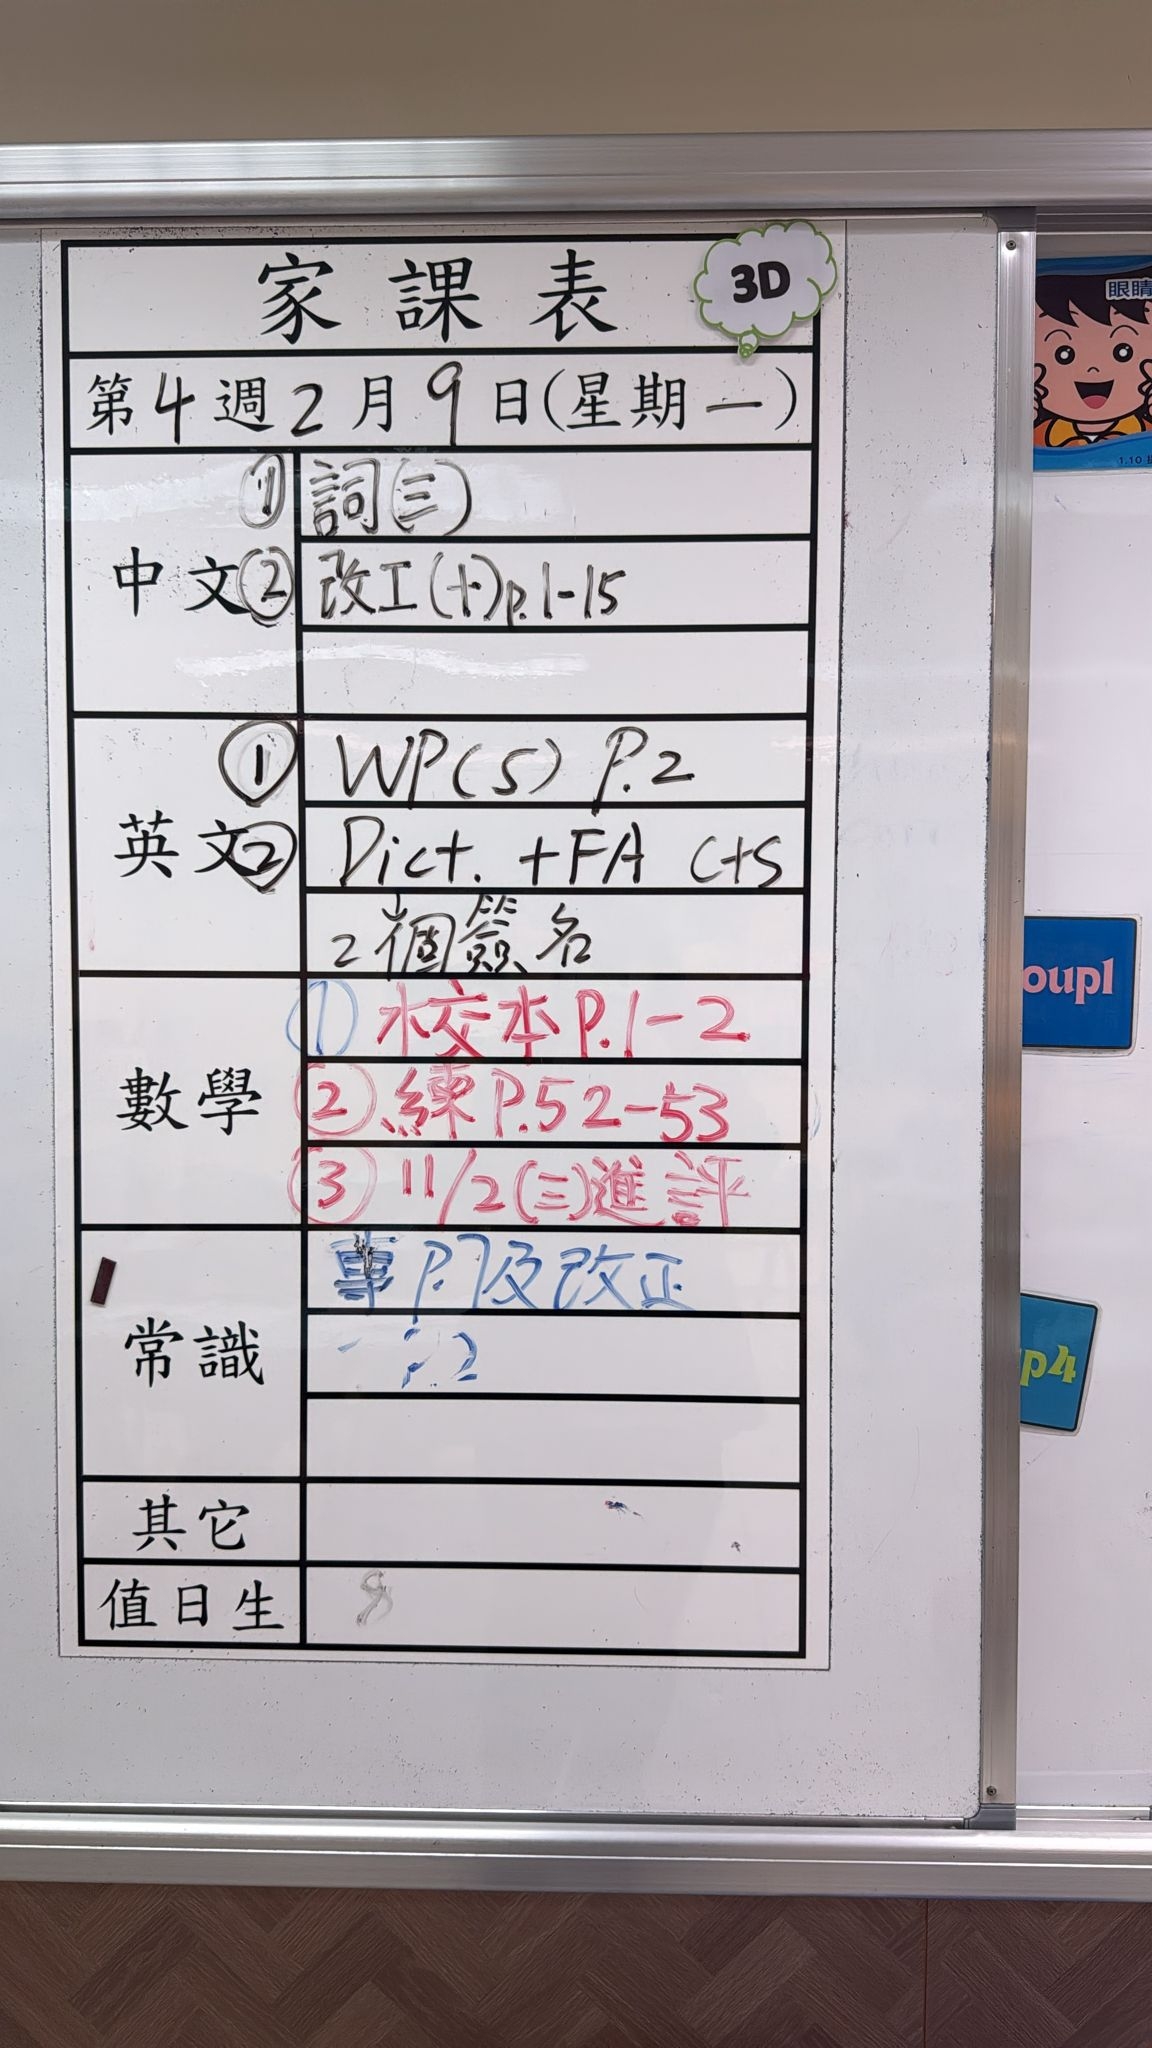 家課表
3D
第4週2月9日(星期一)
中文
① 詞(三)
② 改工(十)p.1-15
英文
① WP(S) P.2
② Dict. +FA C+S
2個簽名
數學
① 校本P.1-2
② 練P.52-53
③ 11/2(三)進評
常識
專P.7及改正
P.2
其它
值日生
8
眼睛
1.10
oup1
p4